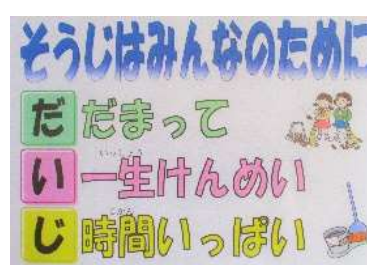 そうじはみんなのために
だ だまって
い 一生けんめい
じ 時間いっぱい